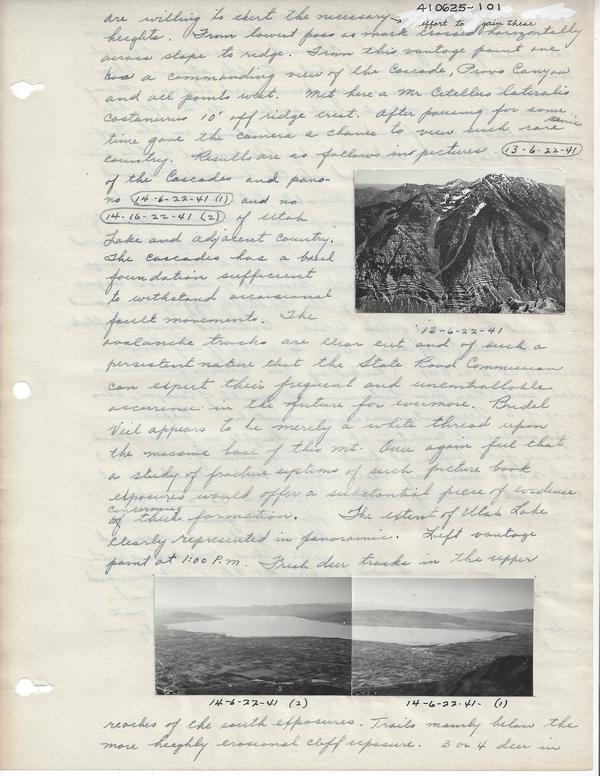 410625-101
are willing to exert the necessary effort to gain these
heights. From lowest pass as mark crossed horizontally
across slope to ridge. From this vantage point one
has a commanding view of the Cascade, Provo Canyon
and all points west. Met here a Mr Citellus lateralis
castanurus 10' off ridge crest. After pausing for some
time gave the camera a chance to view such rare scenic
country. Results are as follows in pictures 13-6-22-41
of the Cascades and pano-
no 14-6-22-41 (1) and no
14-16-22-41 (2) of Utah
Lake and adjacent country.
The cascades has a basal
foundation sufficient
to withstand occasional
fault movements. The
13-6-22-41
avalanche tracks are clear cut and of such a
persistent nature that the State Road Commission
can expect their frequent and uncontrollable
occurence in the future for evermore. Bridel
Veil appears to be merely a white thread upon
the massive base of this mt. Once again feel that
a study of fracture systems of such picture book
exposures would offer a substantial piece of evidence
concerning
of their formation. The extent of Utah Lake
clearly represented in panoramic. Left vantage
point at 1:00 P.M. Fresh deer tracks in the upper
14-6-22-41 (2) 14-6-22-41- (1)
reaches of the south exposures. Trails mainly below the
more highly erosional cliff exposure. 3 or 4 deer in